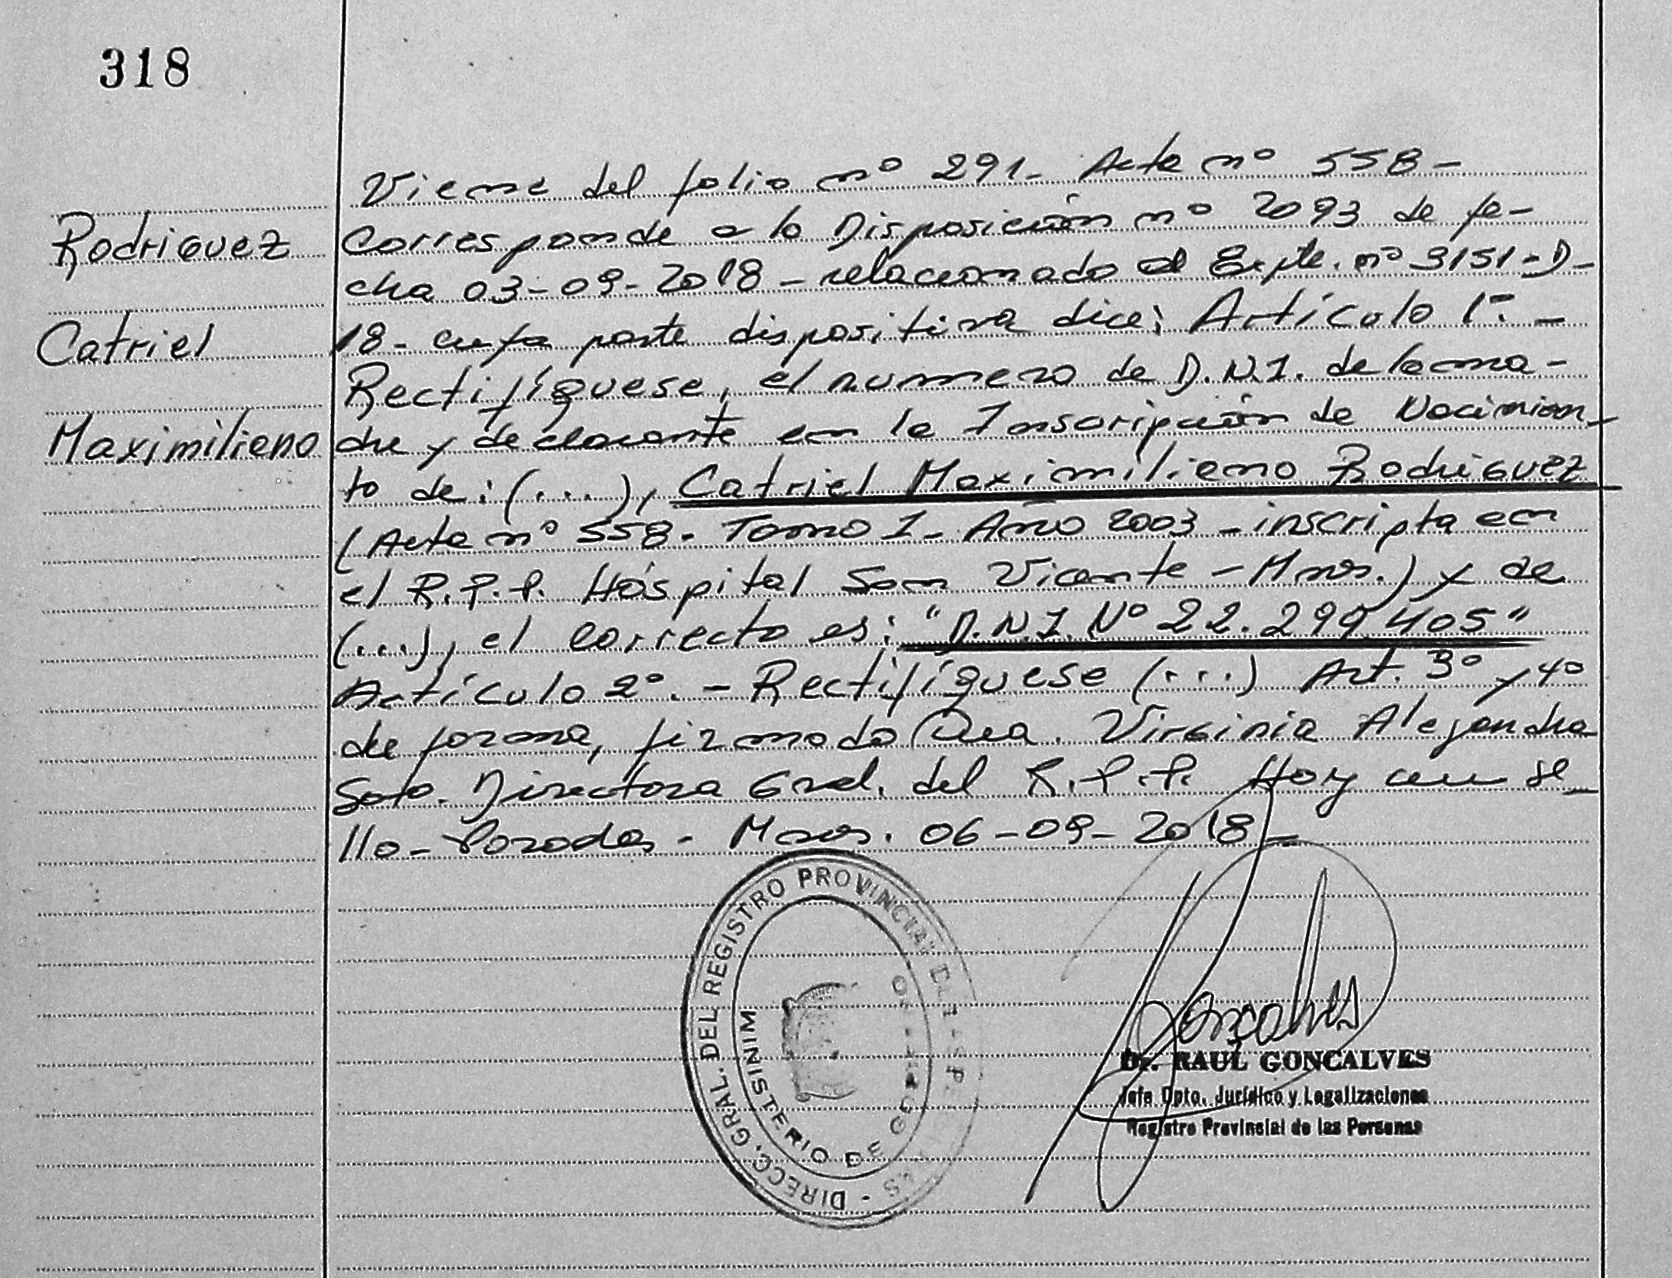 318
Rodriguez
Catriel
Maximilieno
Viene del folio nº 291- Acta nº 558-
Corresponde a la Disposición nº 2093 de fe-
cha 03-09-2018 - relacionado al Expte. nº 3151-D-
18- cuya parte dispositiva dice: Artículo 1º. -
Rectifíquese, el numero de D.N.I. de la ma-
dre y declarante en la Inscripción de Nacimien-
to de: (...), Catriel Maximilieno Rodriguez
(Acta nº 558- Tomo I- Año 2003 - inscripta en
el R.P.P. Hospital San Vicente - Mnes.) y de
(...), el correcto es: "D.N.I. Nº 22.299405"
Artículo 2º. - Rectifíquese (...) Art. 3º y 4º
de forma, firmado Virginia Alejandra
Soto. Directora Gral. del R.P.P. Hoy un se-
llo- Posadas - Mnes. 06-09-2018-
DIRECC. GRAL. DEL REGISTRO PROVINCIAL DE LAS PERS
MINISTERIO DE GOB
Goncalves
Dr. RAUL GONCALVES
Jefe Dpto. Jurídico y Legalizaciones
Registro Provincial de las Personas